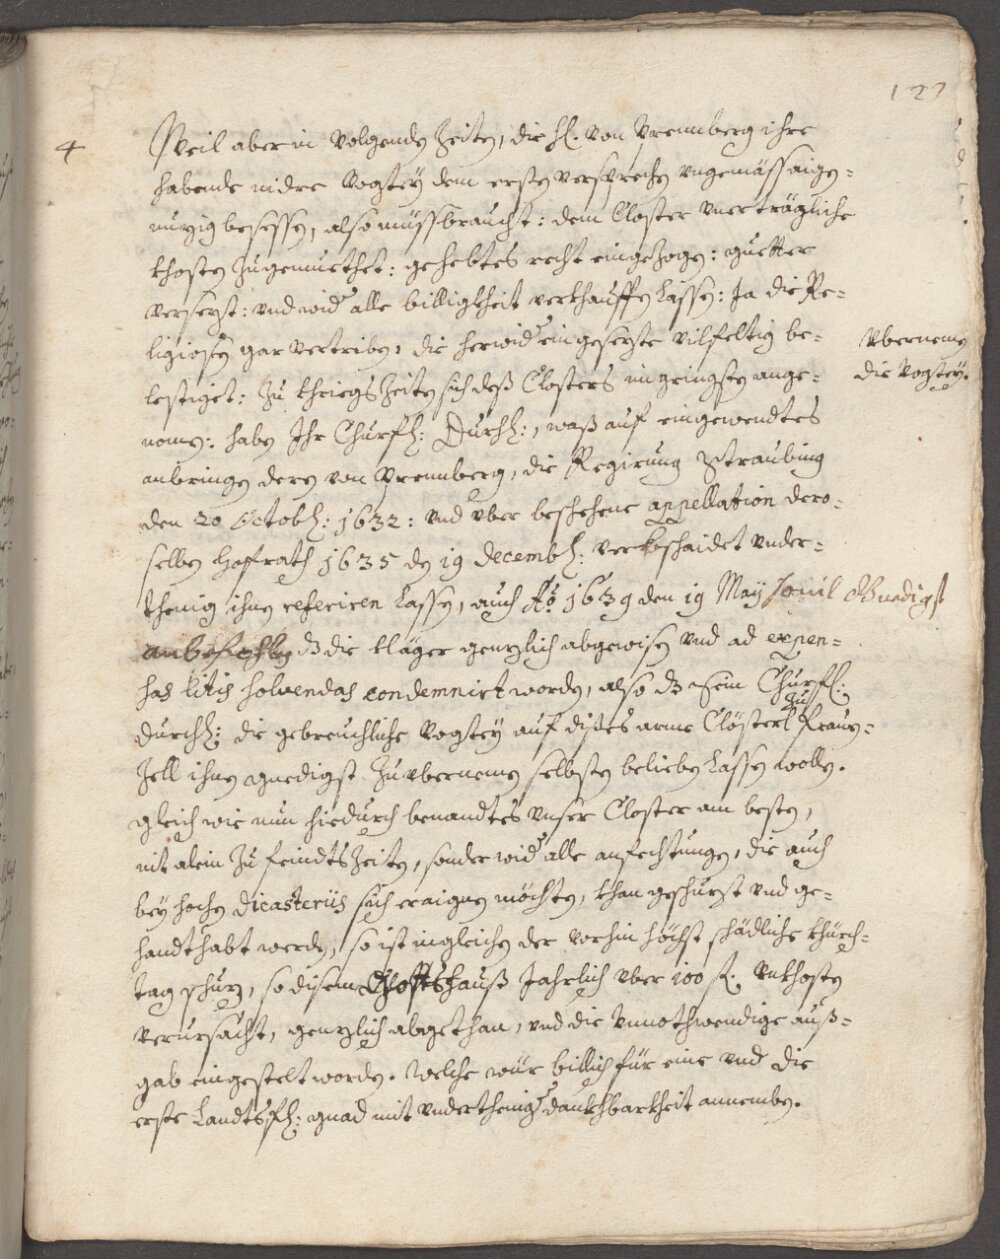 122
4
Weil aber in volgenden Zeiten, die H. von Prennberg ihre
habende nidre Vogtey dem ersten versprechen vngemäss aigen-
nuzig besessen, also müssbraucht: dem Closter vnerträgliche
khosten zuegemuethet: gehebtes recht eingezogen: guetter
versezt: vnd wid alle billigkheit verkhauffen lassen: Ja die Re-
ligiosen gar vertriben, die herwid eingesezte vilfeltig be-
lestiget: zu khriegs Zeiten sich deß Closters im gringsten ange-
nomen: haben Ihr Churfl: Durchl:, waß auf eingewendtes
anbringen deren von Prennberg, die Regirung Straubing
den 20 Octobr: 1632: vnd vber beschehene appellation dero-
selben Hoffrath 1635 den 19 Decembr: verbschaidet vnder-
thenig ihnen referiren lassen, auch Ao 1639 den 19 May souil Gnedigst
anbefohlen dz die kläger genzlich abgewisen vnd ad expen-
sas litis solvendas condemnirt worden, also dz Sein Churfl:
Durchl: die gebreuchliche Vogtey auf dises arme Clösterl zu Frauen-
Zell ihnen gnedigst zu vbernemen selbsten belieben lassen wollen.
gleich wie nun hiedurch benandtes vnser Closter am besten,
nit alein zu feindts Zeiten, sonder wid alle anfechtungen, die auch
bey hochen Dicasteriis sich eraignen möchten, khan geschuzt vnd ge-
handthabt werden, so ist ingleichen der vorhin höchst schädliche khürch-
tag schuz, so disem Gottshauß Jahrlich vber 100 fl. vnkhosten
verursacht, genzlich abgethan, vnd die vnnothwendige auß-
gab eingestelt worden. Welche wür billich für eine vnd die
erste Landtsfl: gnad mit vnderthenig dankhbarkheit annemben.
Vbernemen
die Vogtey.